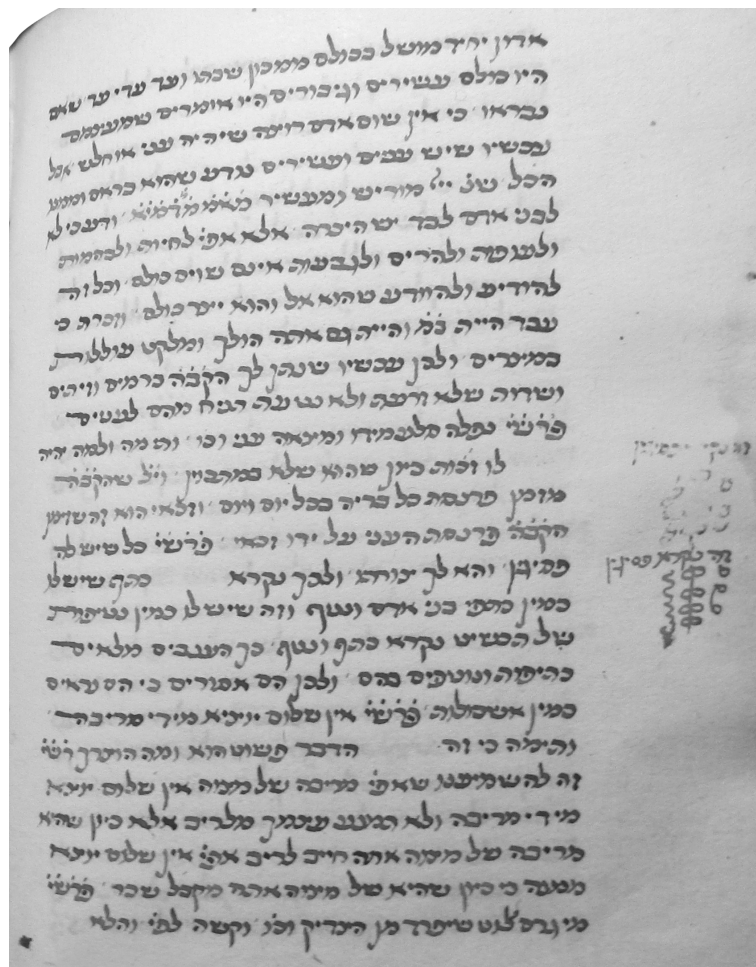 אדון יחיד מושל בכולם ממכון שבתו ועד עדי עד שאם
היו כולם עשירים וגיבורים היו אומרים שמעצמם
נבראו כי אין שום אדם רוצה שיהיה עני או חלש אבל
עכשיו שיש עניים ועשירים נודע שהוא בראם
הכל שנ' ייי מוריש ומעשיר ולא
לבני אדם לבד יש היכרה אלא אפי' לחיות ולבהמות
ולעופות ולהרים ולגבעות אינם שוים כולם וכל זה
להודיע ולהיודע שהוא אל והוא יוצר כולם וזכרת כי
עבד היית והיית גם אתה הולך ומלקט עוללות
במצרים ולכן עכשיו שנתן לך הקב״ה כרמים וזיתים
ושדות שלא זרעת ולא נטעת הנח מהם לעניים
פרש״י נפלה סלע מידו ומצאה עני וכו' ותימה ולמה יהיה
לו זכות כיון שהוא שלא במתכוין וי״ל שהקב״ה
מזמן פרנסת כל בריה בכל יום ויום ודאי הוא זה שזימן
הקב״ה פרנסת העני על ידו זכאי פרש״י כל שיש לה
פסיגין והא לך צורתו ולכך נקרא כתף שיש לו
כמין כתפי בני אדם ונטף וזה שיש לו כמין נטיפות
של תכשיט נקרא כתף ונטף כך הענבים מלאים
כתיפות ונוטפים בהם ולכן הם אסורים כי הם נראים
כמין אשכולות פרש״י אין שלום יוצא מידי מריבה
ותימה כי זה הדבר פשוט הוא ומה הוצרך רש״י
זה להשמיענו שאפי' מריבה של מצוה אין שלום יוצא
מידי מריבה ולא תמנע עצמך מלריב אלא כיון שהיא
מריבה של מצוה אתה חייב לריב אפי' אין שלום יוצא
ממנה כי כיון שהיא של מצוה אתה מקבל שכר פרש״י
מי גרם ללוט שיפרד מן הצדיק וכו' וקשה לפי' והלא
זה נקרא פסיגין